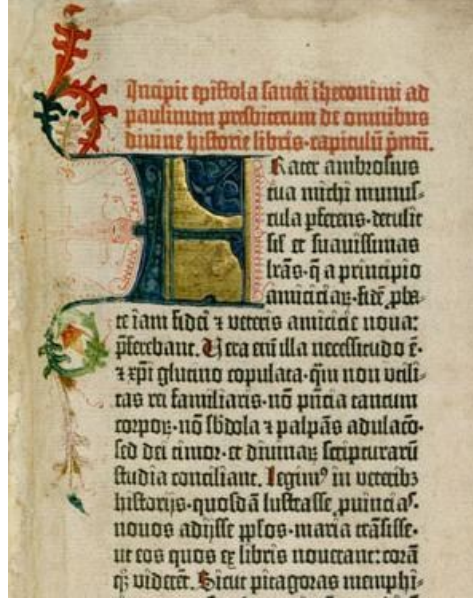 Incipit epistola sancti iheronimi ad
paulinum presbiterum de omnibus
divine historie libris·capitulū pmū.
Frater ambrosius
tua michi munus-
cula pferens·detulit
sil et suavissimas
lrās·q̄ a principio
amiciciaꝝ·fidē pba-
te iam fidei ⁊ veteris amicicie nova:
pferebant. Vera eni illa necessitudo ē·
⁊ xpi glutino copulata·qm non utili-
tas rei familiaris·nō pncia tantum
corpoꝝ·nō sbdola ⁊ palpās adulacō·
sed dei timor·et divinaꝝ scripturarū
studia conciliant. Legim⁹ in veteribꝫ
historijs·quosdā lustrasse puincias·
novos adijsse pplos·maria trāsisse·
ut eos quos ex libris noverant: corā
qꝫ viderēt. Sicut pitagoras memphi-